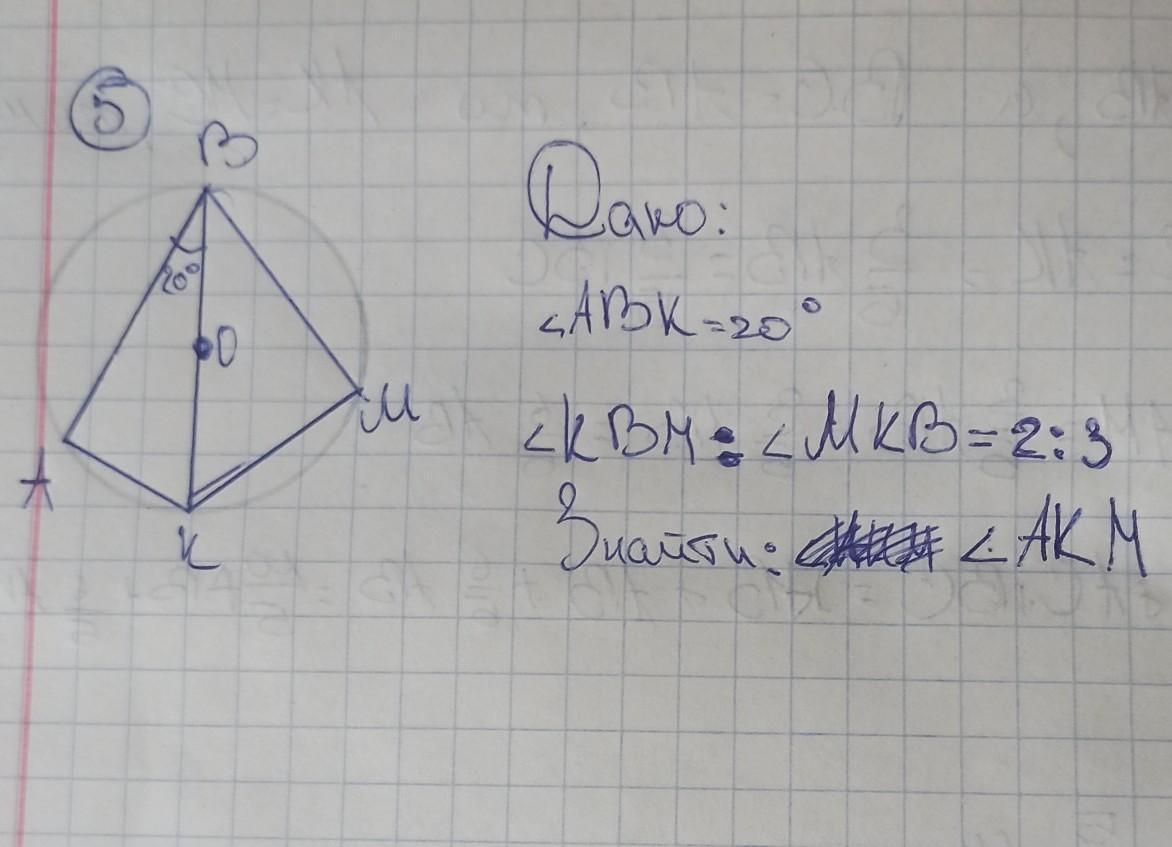 5
B
20°
O
M
A
K
Дано:
∠ABK=20°
∠KBM:∠MKB=2:3
Знайти: ∠AKM